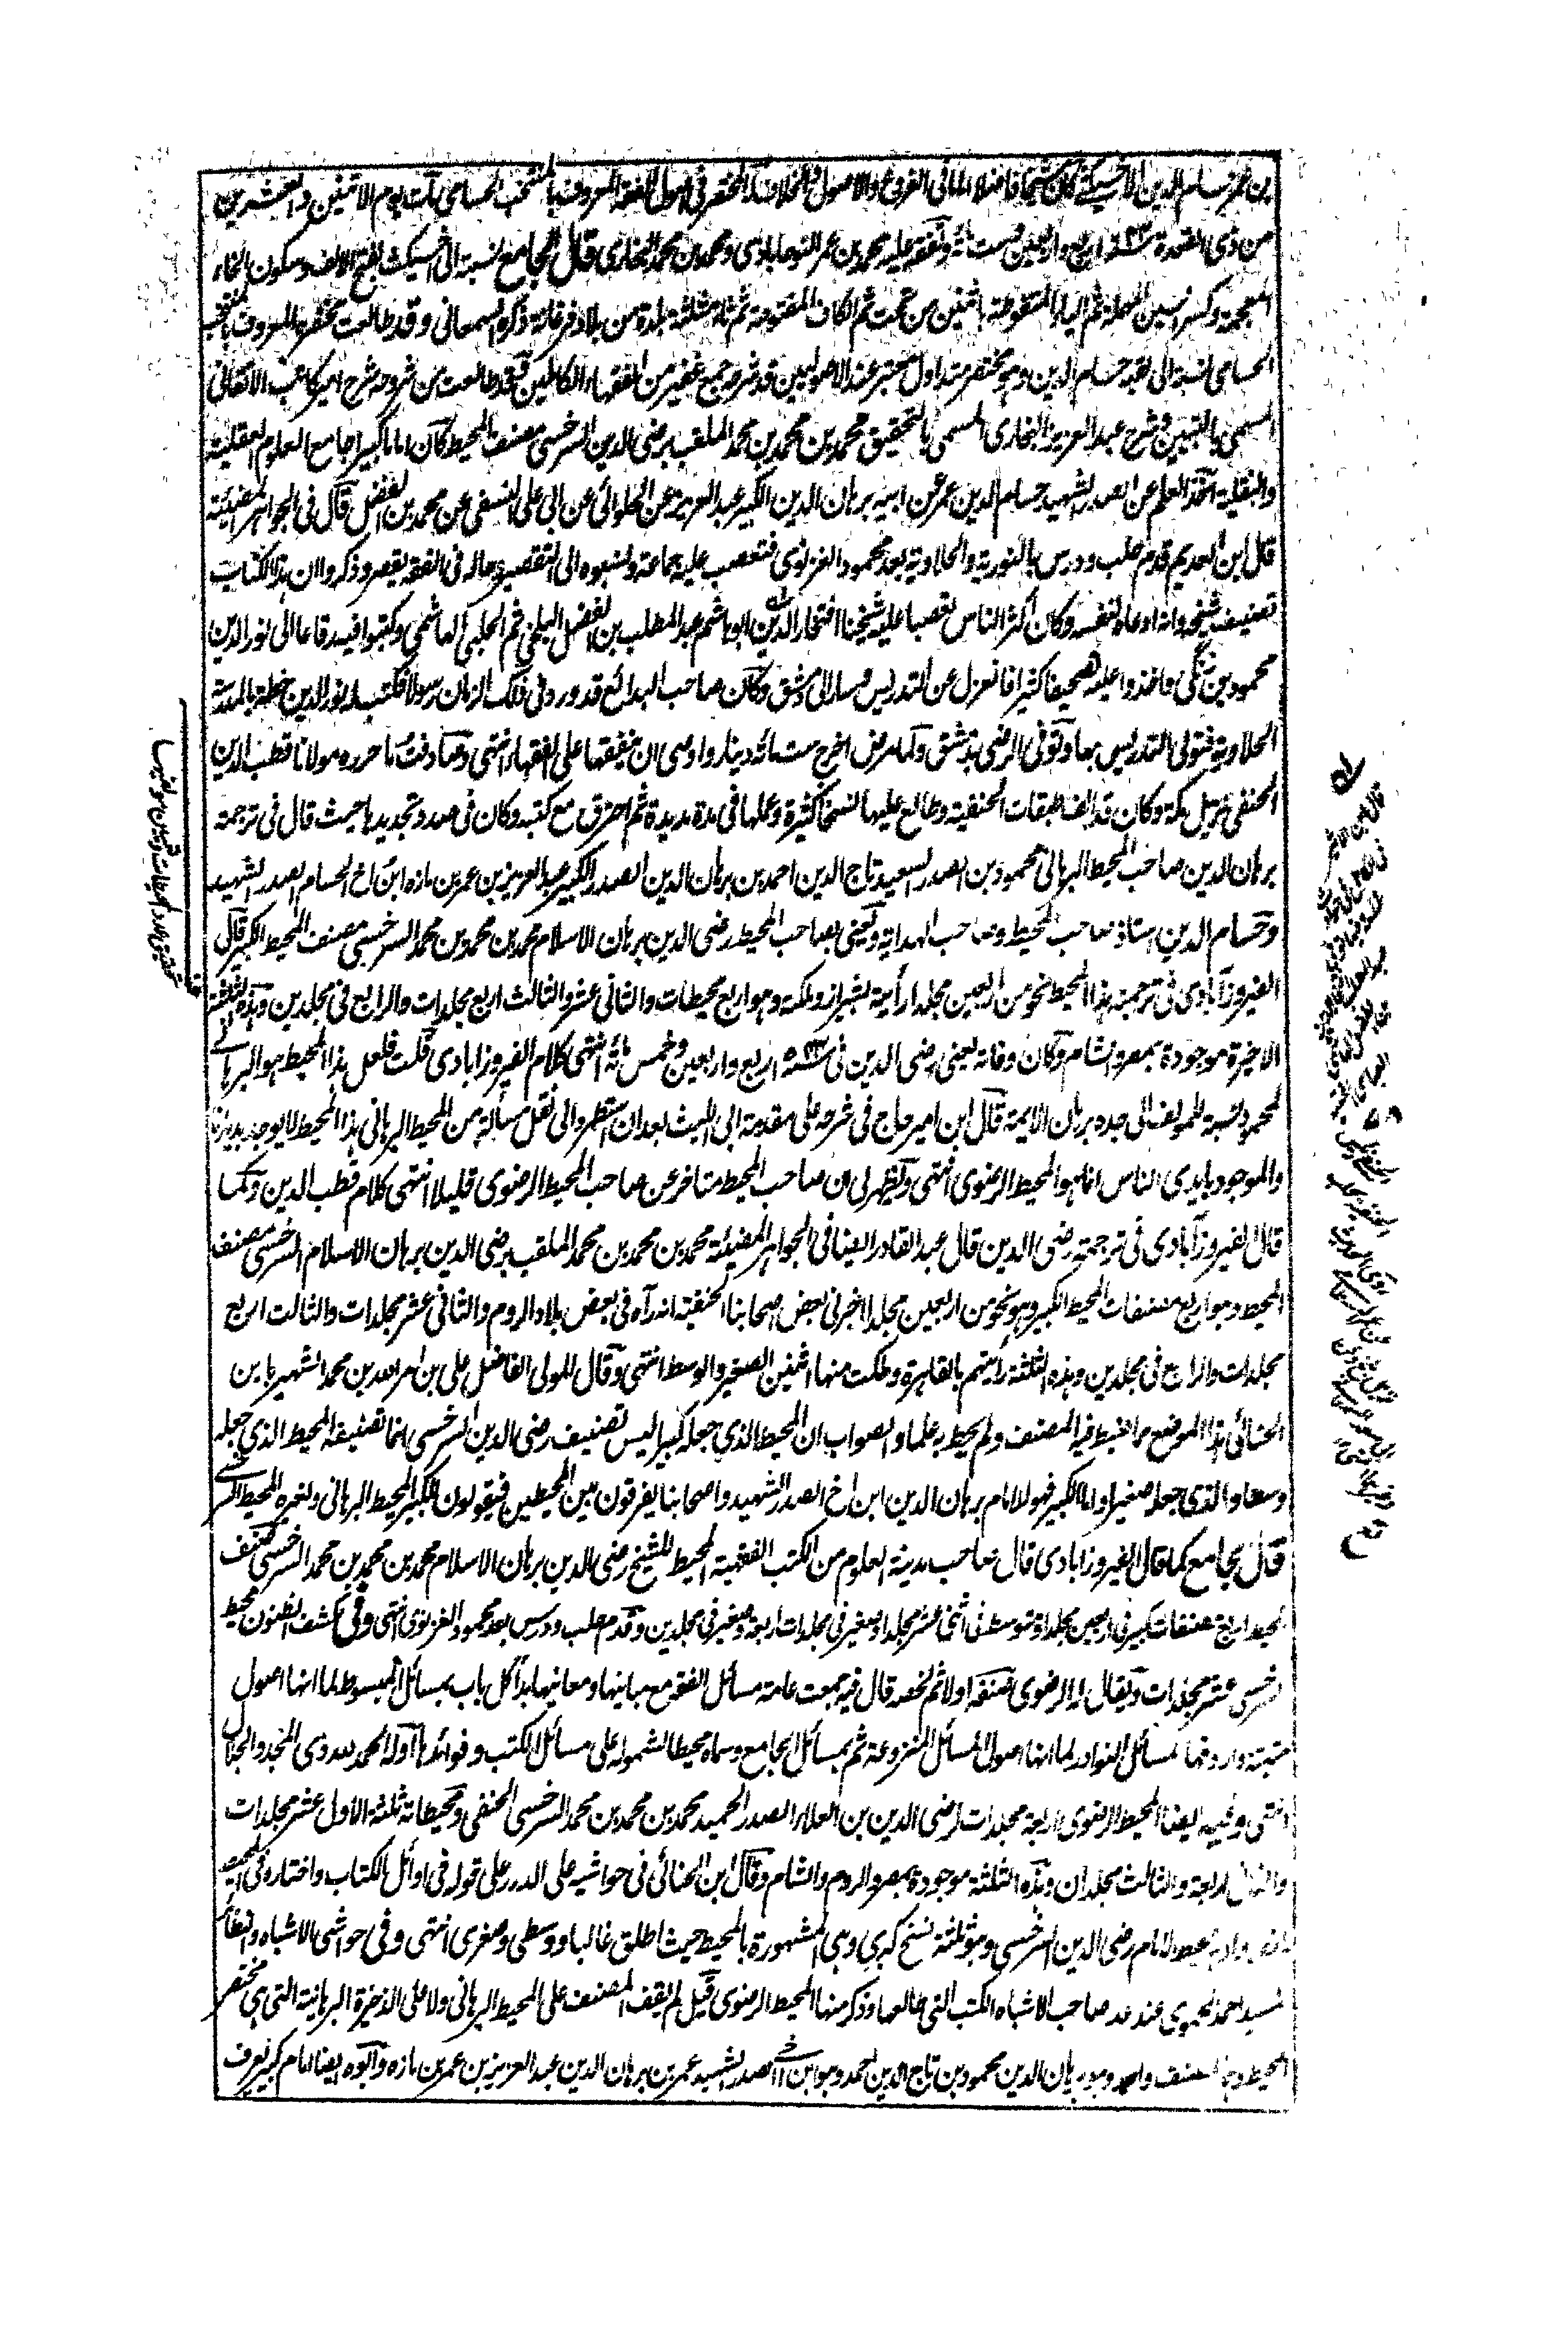 بن عمر حسام الدين الاخسيكثى كان شيخا فاضلا اماما فى الفروع والاصول له المختصر فى اصول الفقه المعروف بالمنتخب الحسامى مات يوم الاثنين والعشرين
من ذى القعدة سنة اربع واربعين وستمائة وتفقه عليه محمد بن عمر النوجاباذى ومحمد بن محمد البخارى قال الجامع نسبة الى اخسيكث بفتح الالف وسكون الخاء
المعجمة وكسر السين المهملة ثم الياء المنقوطة باثنتين من تحت ثم الكاف المفتوحة ثم ثاء مثلثة بلدة من بلاد فرغانة ذكره السمعانى وقد طالعت مختصره المعروف بالمنتخب
الحسامى نسبة الى لقبه حسام الدين وهو مختصر متداول معتبر عند الاصوليين قد شرحه جمع غفير من الفقهاء الكاملين وقد طالعت من شروحه شرح امير كاتب الاتقانى
المسمى بالتبيين وشرح عبد العزيز البخارى المسمى بالتحقيق محمد بن محمد بن محمد الملقب برضى الدين السرخسى مصنف المحيط كان اماما كبيرا جامع العلوم العقلية
والنقلية اخذ العلم عن الصدر الشهيد حسام الدين عمر عن ابيه برهان الدين الكبير عبد العزيز عن الحلوائى عن ابى على النسفى عن محمد بن الفضل قال فى الجواهر المضيئة
قال ابن العديم قدم حلب ودرس بالنورية والحلاوية بعد محمود الغزنوى فتعصب عليه جماعة ونسبوه الى التقصير وحاله فى الفقه يقصر وذكروا ان هذا الكتاب
تصنيف شيخه وانه ادعاه لنفسه وكان اكثر الناس تعصبا عليه شيخنا افتخار الدين ابو هاشم عبد المطلب بن الفضل البلخى ثم الحلبى الهاشمى وكتبوا فيه رقاعا الى نور الدين
محمود بن زنكى واخذوا عليه تصحيفا كثيرا فانعزل عن التدريس وسار الى دمشق وكان صاحب البدائع قد ورد فى ذلك الزمان رسولا فكتب له نور الدين خطه بالمدرسة
الحلاوية فتولى التدريس بها وتوفى الرضى بدمشق ولما مرض اخرج ستمائة دينار واوصى ان ينفقها على الفقهاء انتهى وصادفت ما حرره مولانا قطب الدين
الحنفى نزيل مكة وكان قد الف طبقات الحنفية وطالع عليها نسخا كثيرة وعملها فى مدة مديدة ثم احترق مع كتبه وكان فى صدد تجديدها حيث قال فى ترجمة
برهان الدين صاحب المحيط البرهانى محمود بن الصدر السعيد تاج الدين احمد بن برهان الدين الصدر الكبير عبد العزيز بن عمر بن مازه ابن اخ الحسام الصدر الشهيد
وحسام الدين استاذ صاحب المحيط وصاحب الهداية ويعنى بصاحب المحيط رضى الدين برهان الاسلام محمد بن محمد بن محمد السرخسى مصنف المحيط الكبير قال
الفيروزآبادى فى ترجمته هذا المحيط نحو من اربعين مجلدا رأيته بشيراز وملكته وهو اربع محيطات والثانى عشر والثالث اربع مجلدات والرابع فى مجلدين وهذه الثلثة
الاخيرة موجودة بمصر والشام وكان وفاته يعنى رضى الدين فى سنة اربع واربعين وخمس مائة انتهى كلام الفيروزابادى قلت فلعل هذا المحيط هو البرهانى
لمحمود نسبة للمؤلف الى جده برهان الايمة قال ابن امير حاج فى شرحه على مقدمة ابى الليث بعد ان استطرد الى نقل مسألة من المحيط البرهانى هذا المحيط لا يوجد بديارنا
والموجود بايدى الناس انما هو المحيط الرضوى انتهى ويظهر لى ان صاحب المحيط متاخر عن صاحب المحيط الرضوى قليلا انتهى كلام قطب الدين وكما
قال الفيروزآبادى فى ترجمة رضى الدين قال عبد القادر ايضا فى الجواهر المضيئة محمد بن محمد بن محمد الملقب برضى الدين برهان الاسلام السرخسى مصنف
المحيط وهو اربع مصنفات المحيط الكبير وهو نحو من اربعين مجلدا اخبرنى بعض اصحابنا الحنفية انه رآه فى بعض بلاد الروم والثانى عشر مجلدات والثالث اربع
مجلدات والرابع فى مجلدين وهذه الثلثة رأيتهم بالقاهرة وملكت منها اثنين الصغير والوسط انتهى وقال المولى الفاضل على بن امر الله بن محمد الشهير بابن
الحنائى هذا الموضع مما خبط فيه المصنف ولم يحيط به علما والصواب ان المحيط الذى جعله كبيرا ليس تصنيف رضى الدين السرخسى انما تصنيفه المحيط الذى جعله
وسطا والذى جعله صغيرا واما الكبير فهو للامام برهان الدين ابن اخ الصدر الشهيد واصحابنا يفرقون بين المحيطين فيقولون للكبير المحيط البرهانى ولغيره المحيط السرخسى
قال الجامع كما قال الفيروزابادى قال صاحب مدينة العلوم من الكتب الفقهية المحيط للشيخ رضى الدين برهان الاسلام محمد بن محمد بن محمد السرخسى صنف
المحيط اربع مصنفات كبير فى اربعين مجلدا ومتوسط فى اثنى عشر مجلدا وصغير فى مجلدات اربعة وصغير فى مجلدين وقدم حلب ودرس بعد محمود الغزنوى انتهى وفى كشف الظنون محيط
السرخسى عشر مجلدات ويقال له الرضوى صنفه اولا ثم لخصه قال فيه جمعت عامة مسائل الفقه مع مبانيها ومعانيها بدأ كل باب بمسائل المبسوط لما انها اصول
مبنية واردفها بمسائل النوادر لما انها اصول المسائل المنزوعة ثم بمسائل الجامع وسماه محيطا لشموله على مسائل الكتب وفوائدها اوله الحمد لله ذى المجد والجلال
انتهى وفيه ايضا المحيط الرضوى اربعة مجلدات لرضى الدين بن العلاء الصدر الحميد محمد بن محمد بن محمد السرخسى الحنفى ومحيطاته ثلثة الاول عشر مجلدات
والثانى اربعة والثالث مجلدان وهذه الثلثة موجودة بمصر والروم والشام وقال ابن الحنائى فى حواشيه على الدرر على قوله فى اوائل الكتاب واختاره فى المحيط
المراد به محيط الامام رضى الدين السرخسى وهو ثلثة نسخ كبرى وهى المشهورة بالمحيط حيث اطلق غالبا ووسطى وصغرى انتهى وفى حواشى الاشباه والنظائر
للسيد احمد الحموى عند عد صاحب الاشباه الكتب التى طالعها وذكر منها المحيط الرضوى قيل لم يقف المصنف على المحيط البرهانى ولا على الذخيرة البرهانية التى هى مختصر
المحيط وهما لمصنف واحد وهو برهان الدين محمود بن تاج الدين احمد وهو ابن اخى الصدر الشهيد عمر بن برهان الدين عبد العزيز بن عمر بن مازه وابوه ايضا امام كبير يعرف